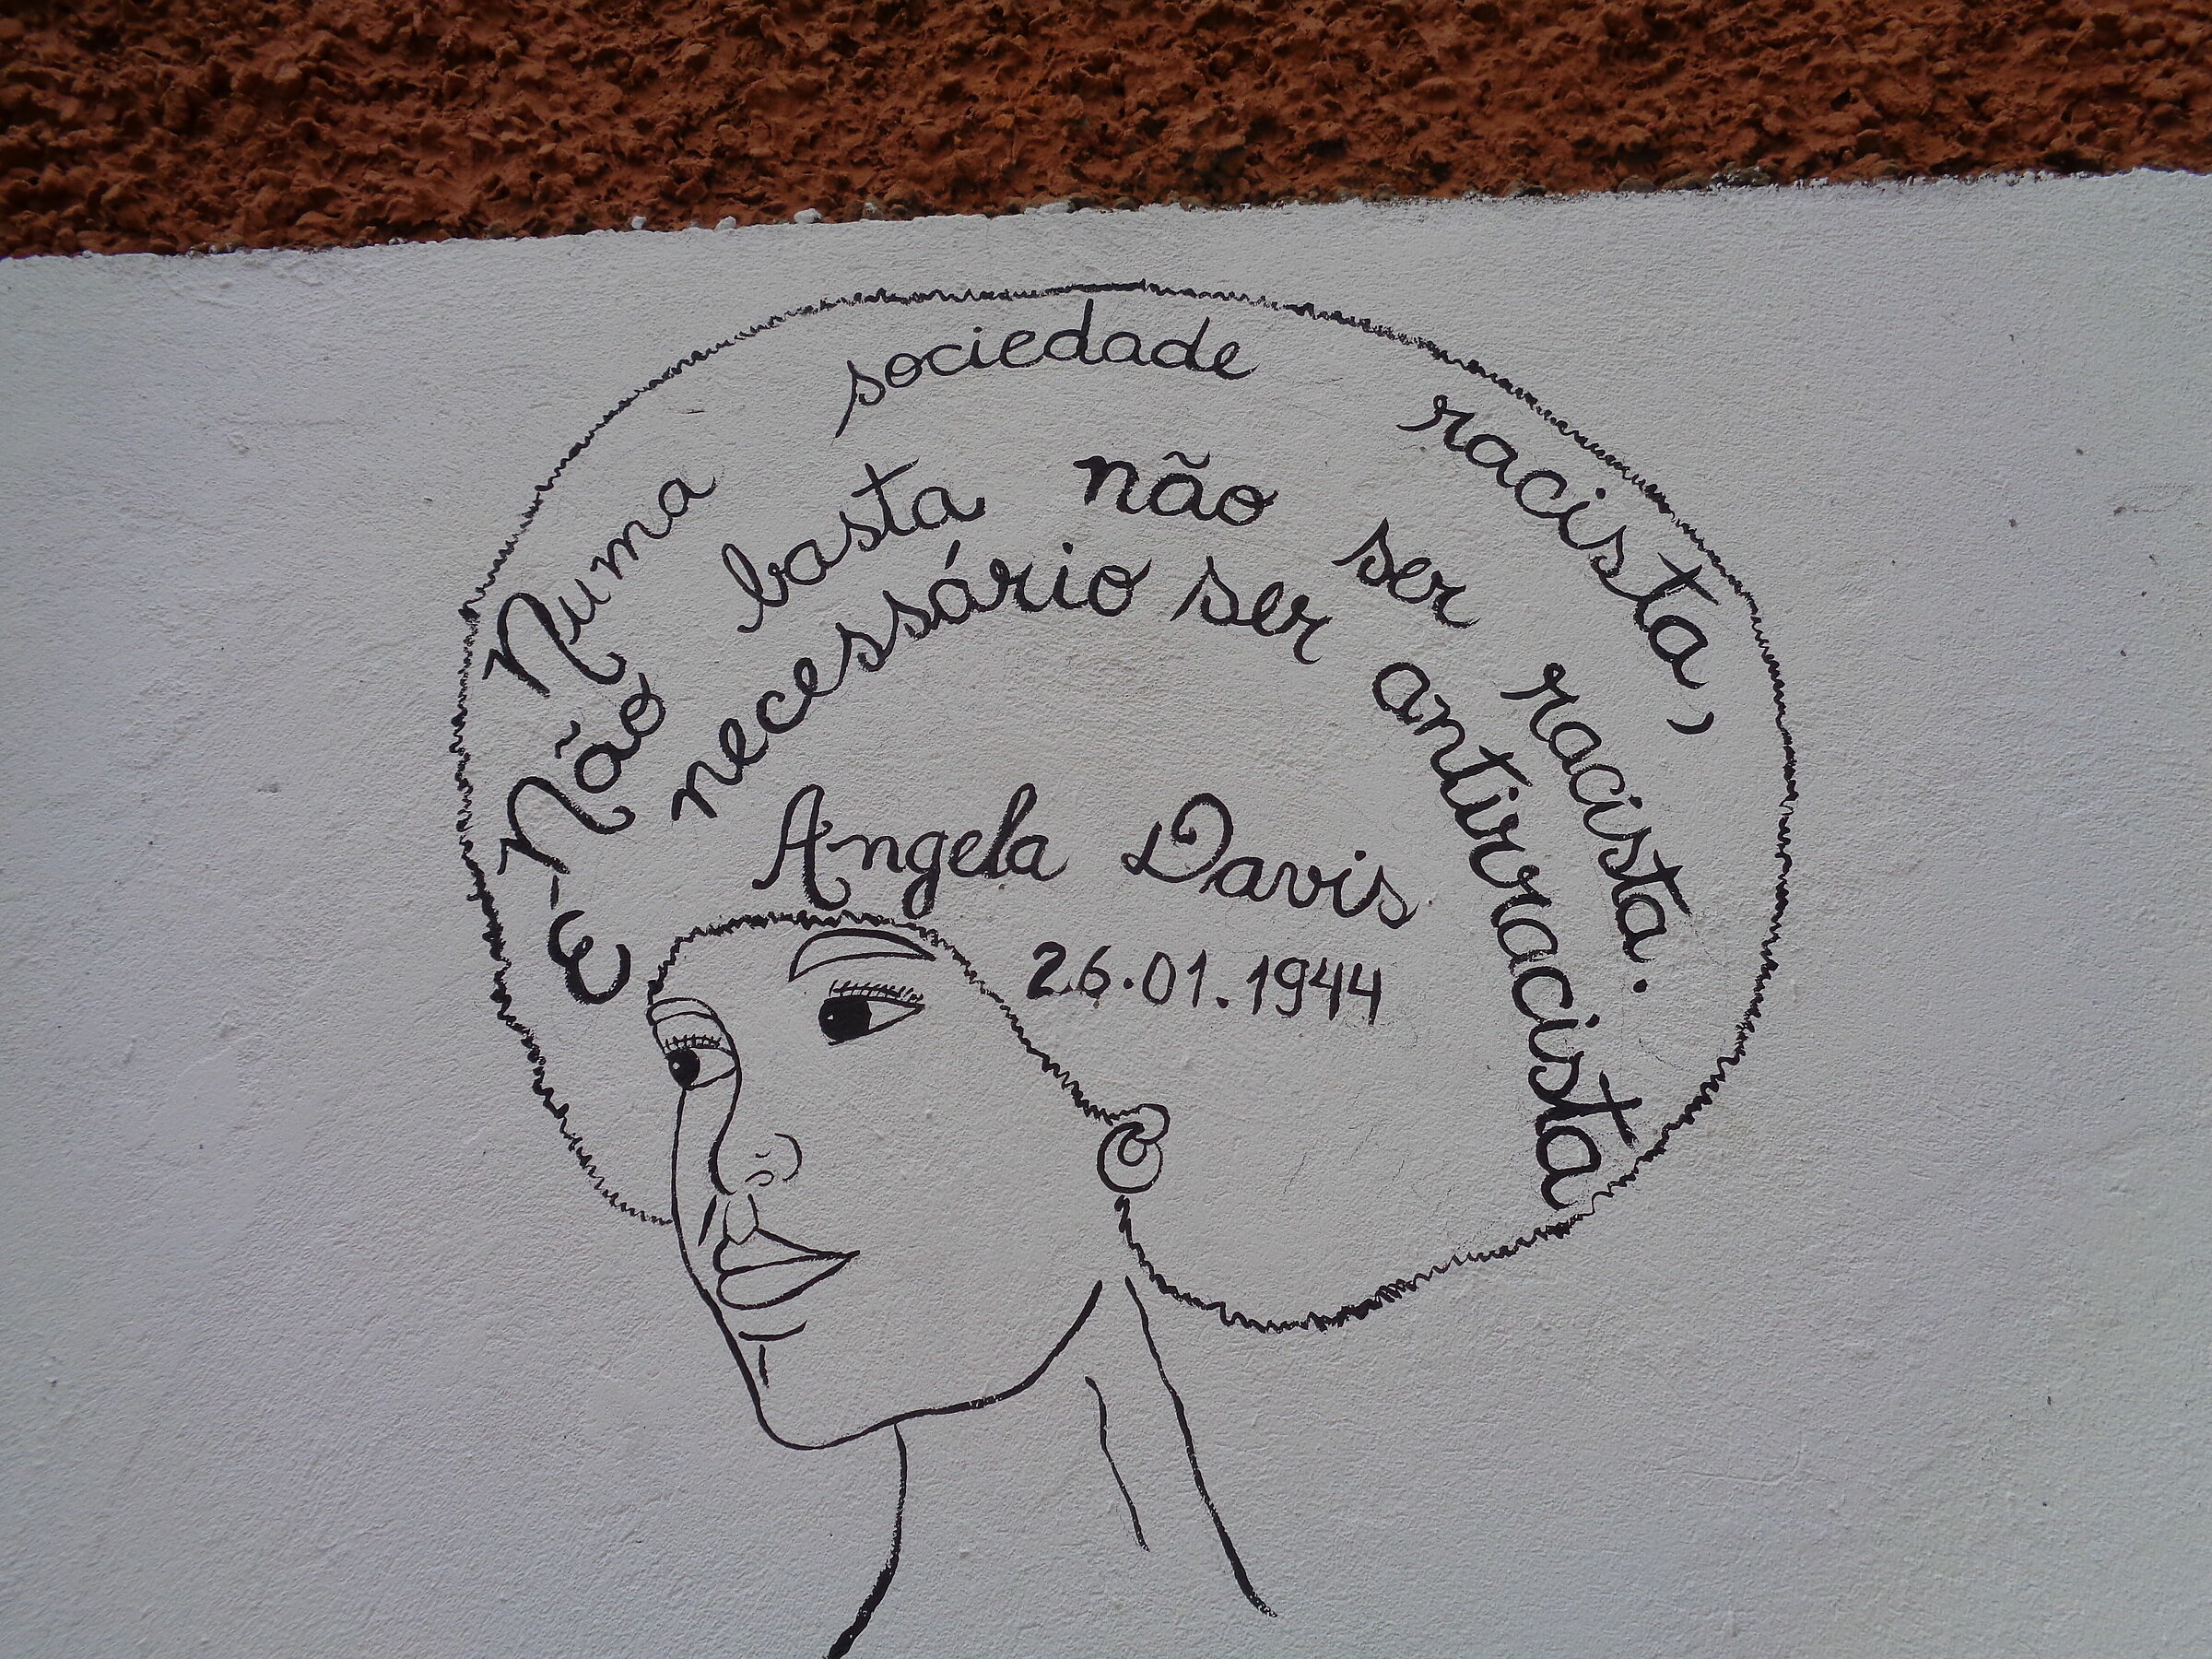 Numa sociedade racista,
Não basta não ser racista.
É necessário ser antirracista
Angela Davis
26.01.1944